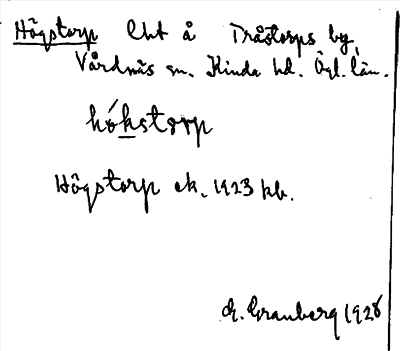 Högstorp Lht å Tråstorps by,
Vårdnäs sn. Kinda hd. Ögl. län.
hókstorp
Högstorp ek. 1923 kb.
G. Granberg 1928